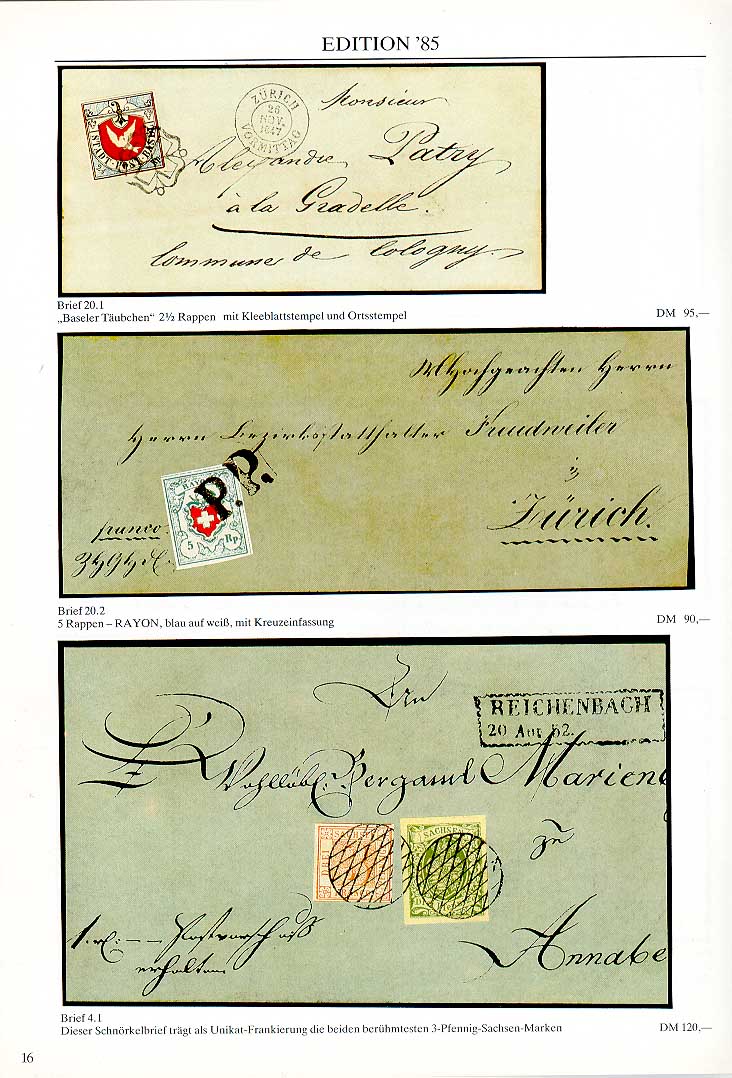 EDITION '85
STADT-POST-BASEL
ZÜRICH
26
NOV.
1847
VORMITTAG
Monsieur
Alexandre Patry
à la Gradelle.
Commune de Cologny.
Brief 20.1
„Baseler Täubchen“ 2½ Rappen mit Kleeblattstempel und Ortsstempel
DM 95,—
Hochgeachten Herrn
Herrn Bezirksstatthalter Freudweiler
P.P.
RAYON
Zürich.
franco.
5 Rp
Brief 20.2
5 Rappen – RAYON, blau auf weiß, mit Kreuzeinfassung
DM 90,—
An
REICHENBACH
20 Aug 52.
Wohllöbl. Bergamt Marienb
SACHSEN
DREI
SACHSEN
zu
Postvorschuß
erhalten
Annabe
Brief 4.1
Dieser Schnörkelbrief trägt als Unikat-Frankierung die beiden berühmtesten 3-Pfennig-Sachsen-Marken
DM 120,—
16